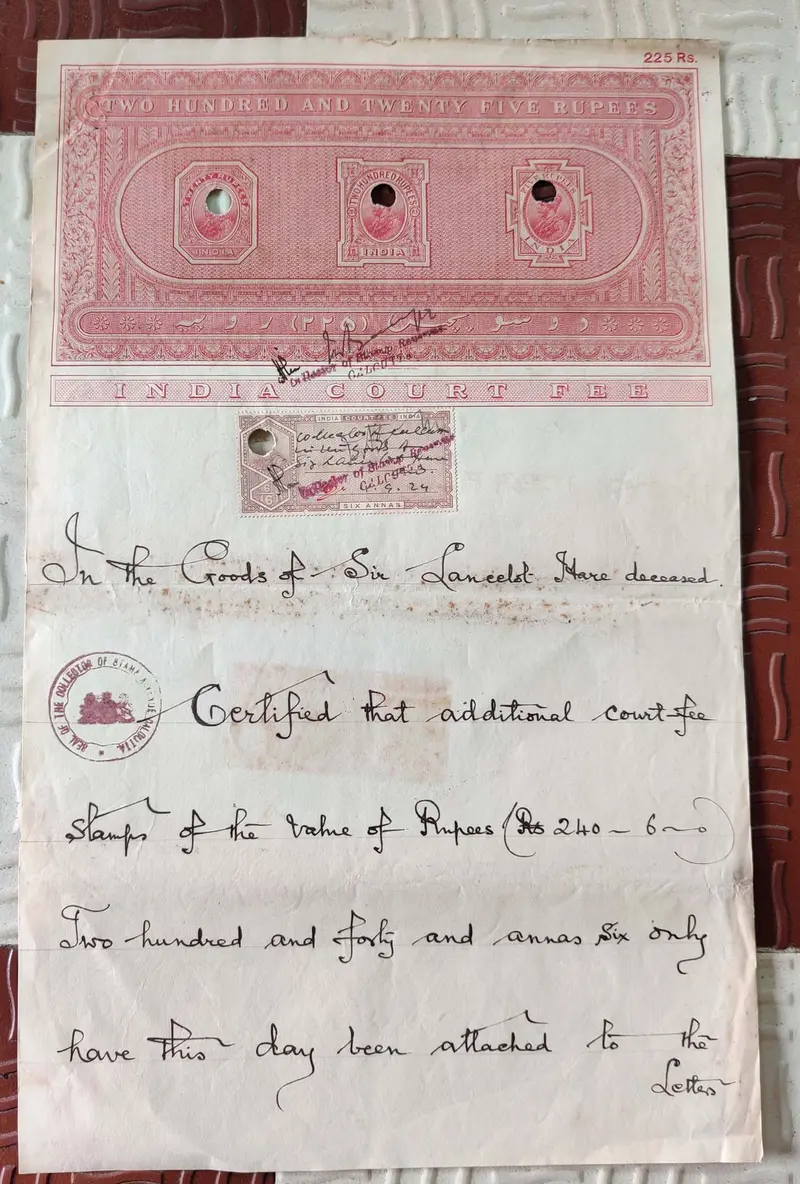 225 Rs.
TWO HUNDRED AND TWENTY FIVE RUPEES
TWENTY RUPEES
INDIA
TWO HUNDRED RUPEES
INDIA
FIVE RUPEES
INDIA
دو سو پچیس (۲۲۵) روپیہ
Collector of Stamp Revenue
CALCUTTA
INDIA COURT FEE
INDIA COURT FEE
Collector of Stamp Revenue
9. 24
SIX ANNAS
In the Goods of Sir Lancelot Hare deceased.
SEAL OF THE COLLECTOR OF STAMP REVENUE CALCUTTA
Certified that additional court-fee
stamps of the value of Rupees (Rs 240 - 6 - 0)
Two hundred and forty and annas six only
have this day been attached to the
Letters